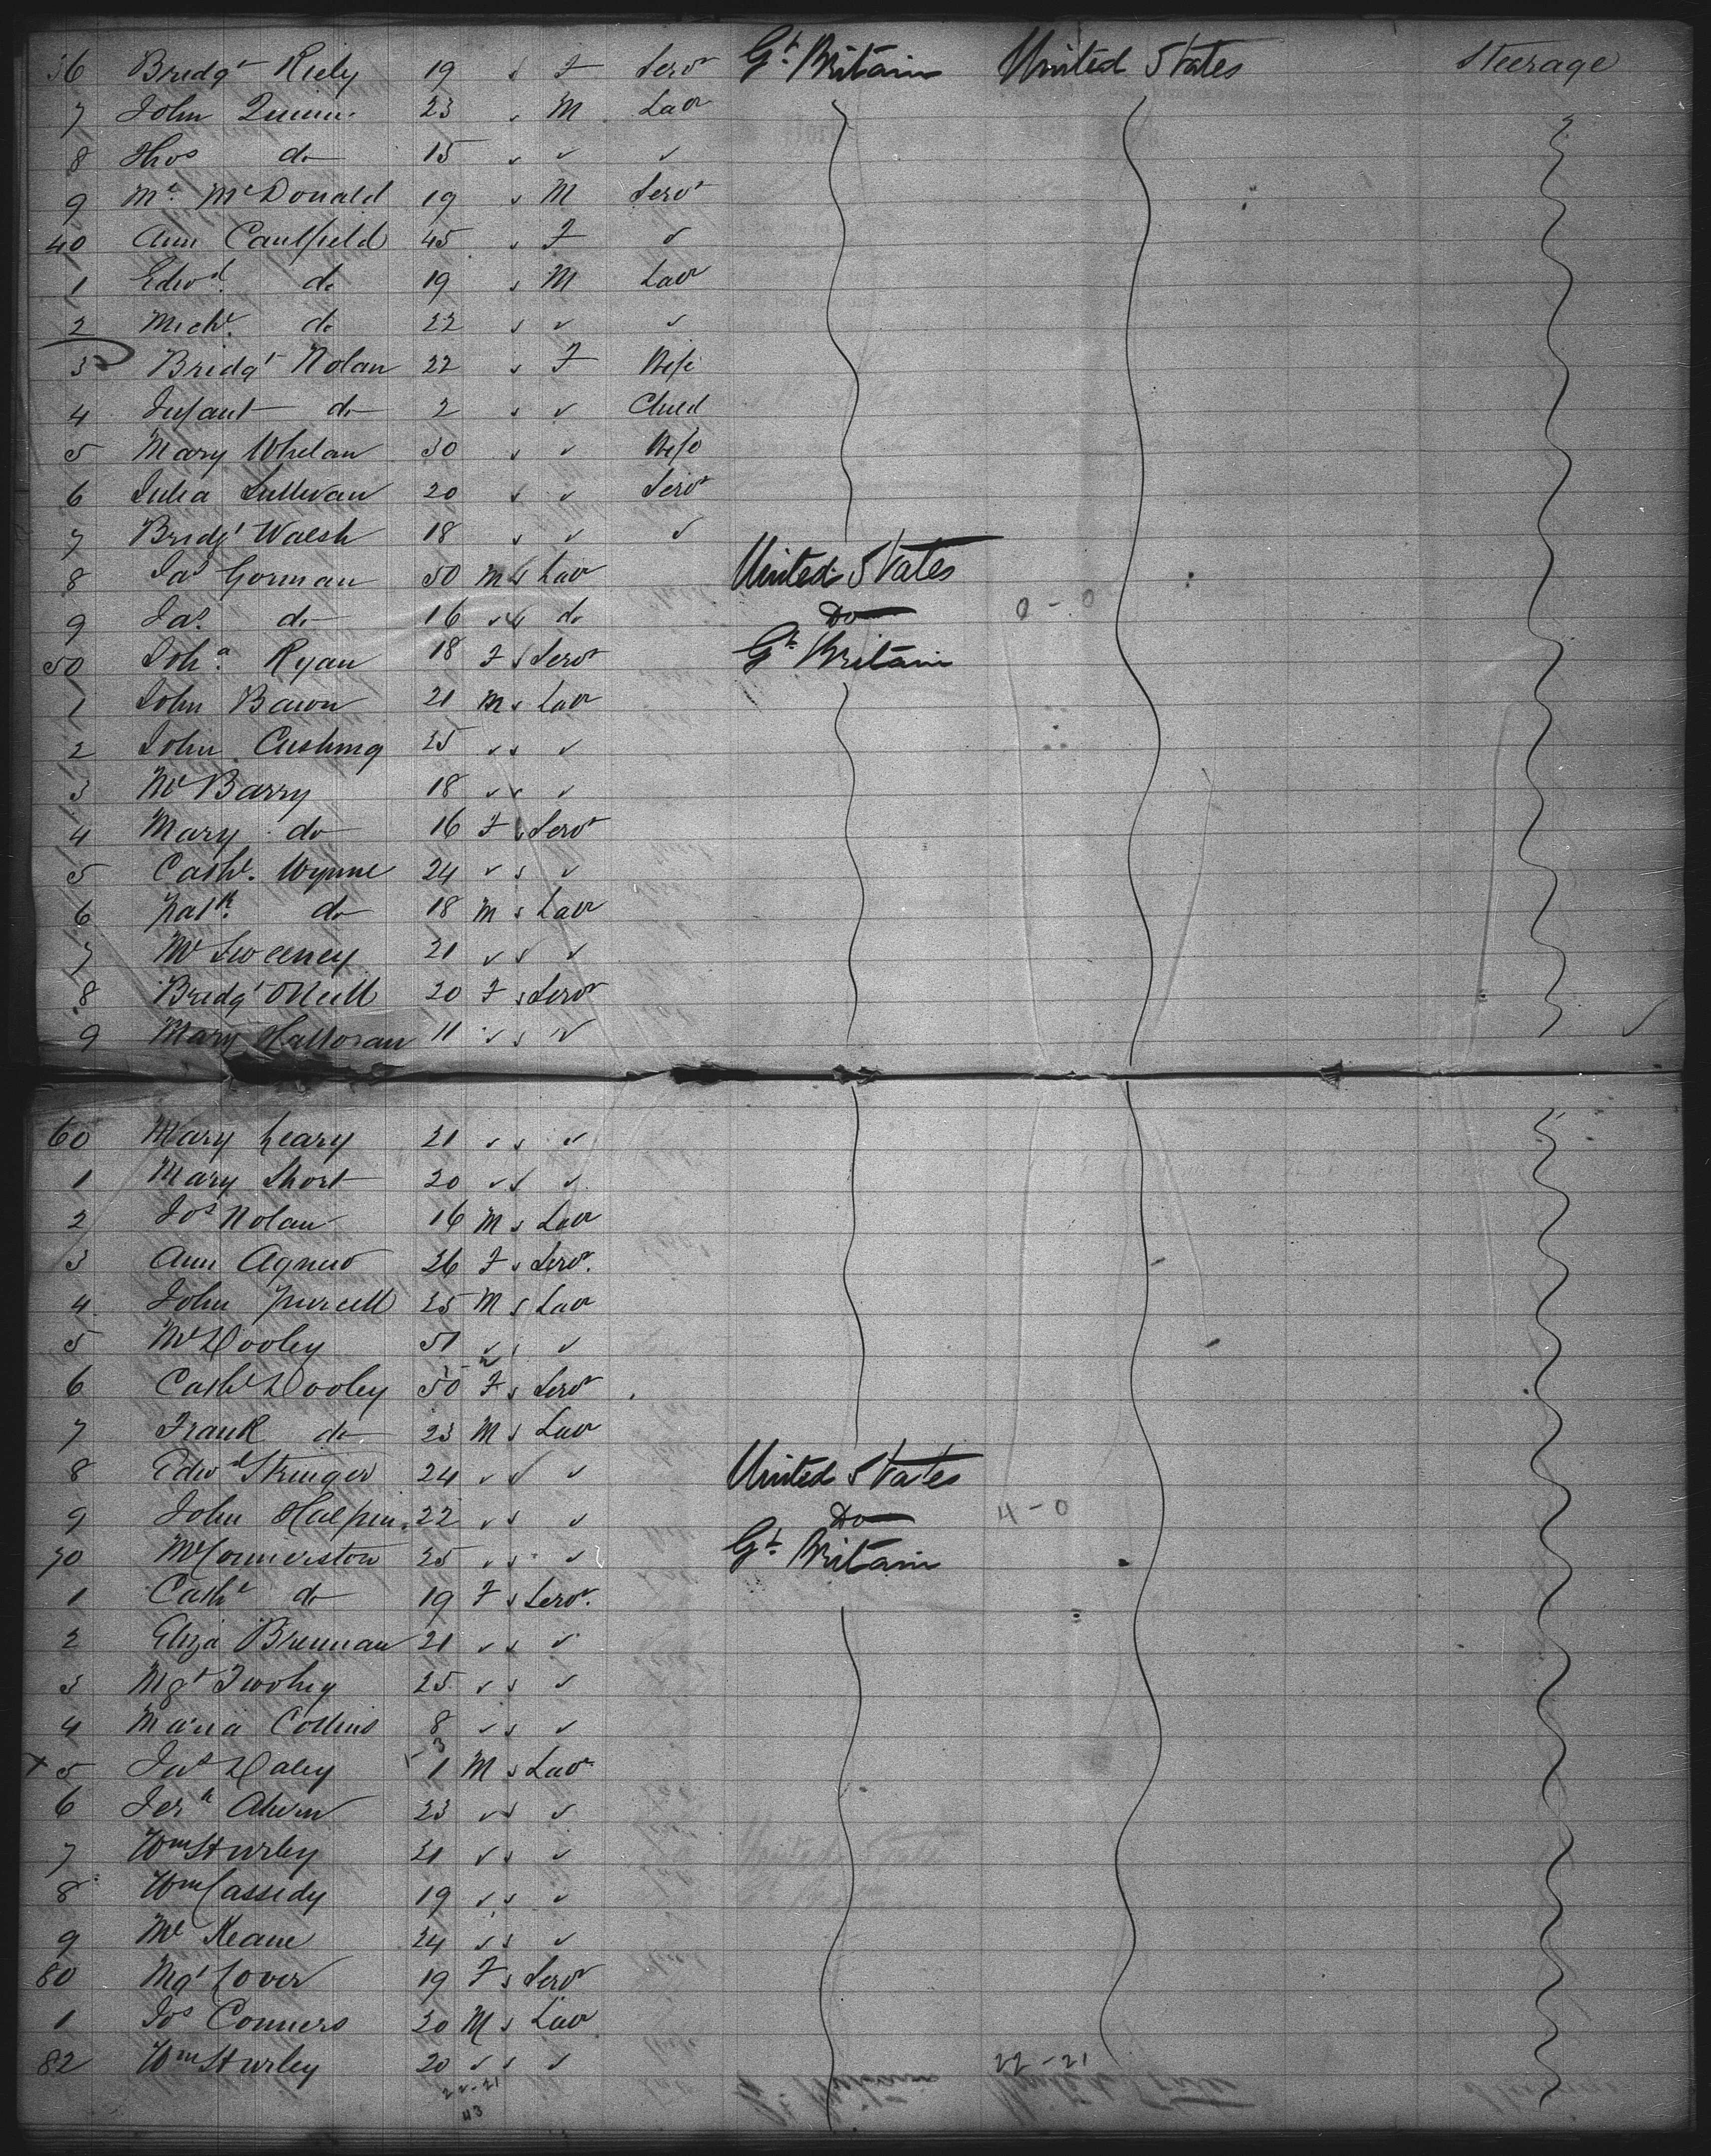 36 Bridgt Riely 19 s F Servt Gt Britain United States Steerage
7 John Quinn 23 s M Labr
8 Thos do 15 s ✓ ✓
9 Ml McDonald 19 s M Servt
40 Ann Caulfield 45 s F ✓
1 Edwd do 19 s M Labr
2 Michl do 22 s ✓ ✓
3 Bridgt Nolan 22 s F Wife
4 Infant do 2 s ✓ Child
5 Mary Whelan 30 s ✓ Wife
6 Julia Sullivan 20 s ✓ Servt
7 Bridgt Walsh 18 s ✓ ✓
8 Jas Gorman 50 M s Labr United States
9 Jas do 16 ✓ s do Do 0-0
50 Joha Ryan 18 F s Servt Gt Britain
1 John Bacon 21 M s Labr
2 John Cushing 25 ✓ s ✓
3 Ml Barry 18 ✓ s ✓
4 Mary do 16 F s Servt
5 Cathe Wynne 24 ✓ s ✓
6 Patk do 18 M s Labr
7 Ml Sweeney 21 ✓ s ✓
8 Bridgt ONeill 20 F s Servt
9 Mary Halloran 11 ✓ s ✓ ✓
60 Mary Leary 21 ✓ s ✓
1 Mary Short 20 ✓ s ✓
2 Jos Nolan 16 M s Labr
3 Ann Agnew 26 F s Servt
4 John Purcell 25 M s Labr
5 Ml Dooley 51 ✓ s ✓
6 Cathe Dooley 50 F s Servt
7 Frank do 23 M s Labr
8 Edwd Stringer 24 ✓ s ✓ United States
9 John Halpin 22 ✓ s ✓ Do 4-0
70 Ml 25 ✓ s ✓ Gt Britain
1 Cathe do 19 F s Servt
2 Eliza Brennan 21 ✓ s ✓
3 Mgt Twohig 25 ✓ s ✓
4 Maria Collins 8 ✓ s ✓
x 5 Jas Daley 1 M s Labr
6 Jerh Ahern 23 ✓ s ✓
7 Wm Hurley 21 ✓ s ✓
8 Wm Cassidy 19 ✓ s ✓
9 Ml Keane 24 ✓ s ✓
80 Mgt Cover 19 F s Servt
1 Jos Conners 20 M s Labr
82 Wm Hurley 20 ✓ s ✓ 22-21
22-21
43